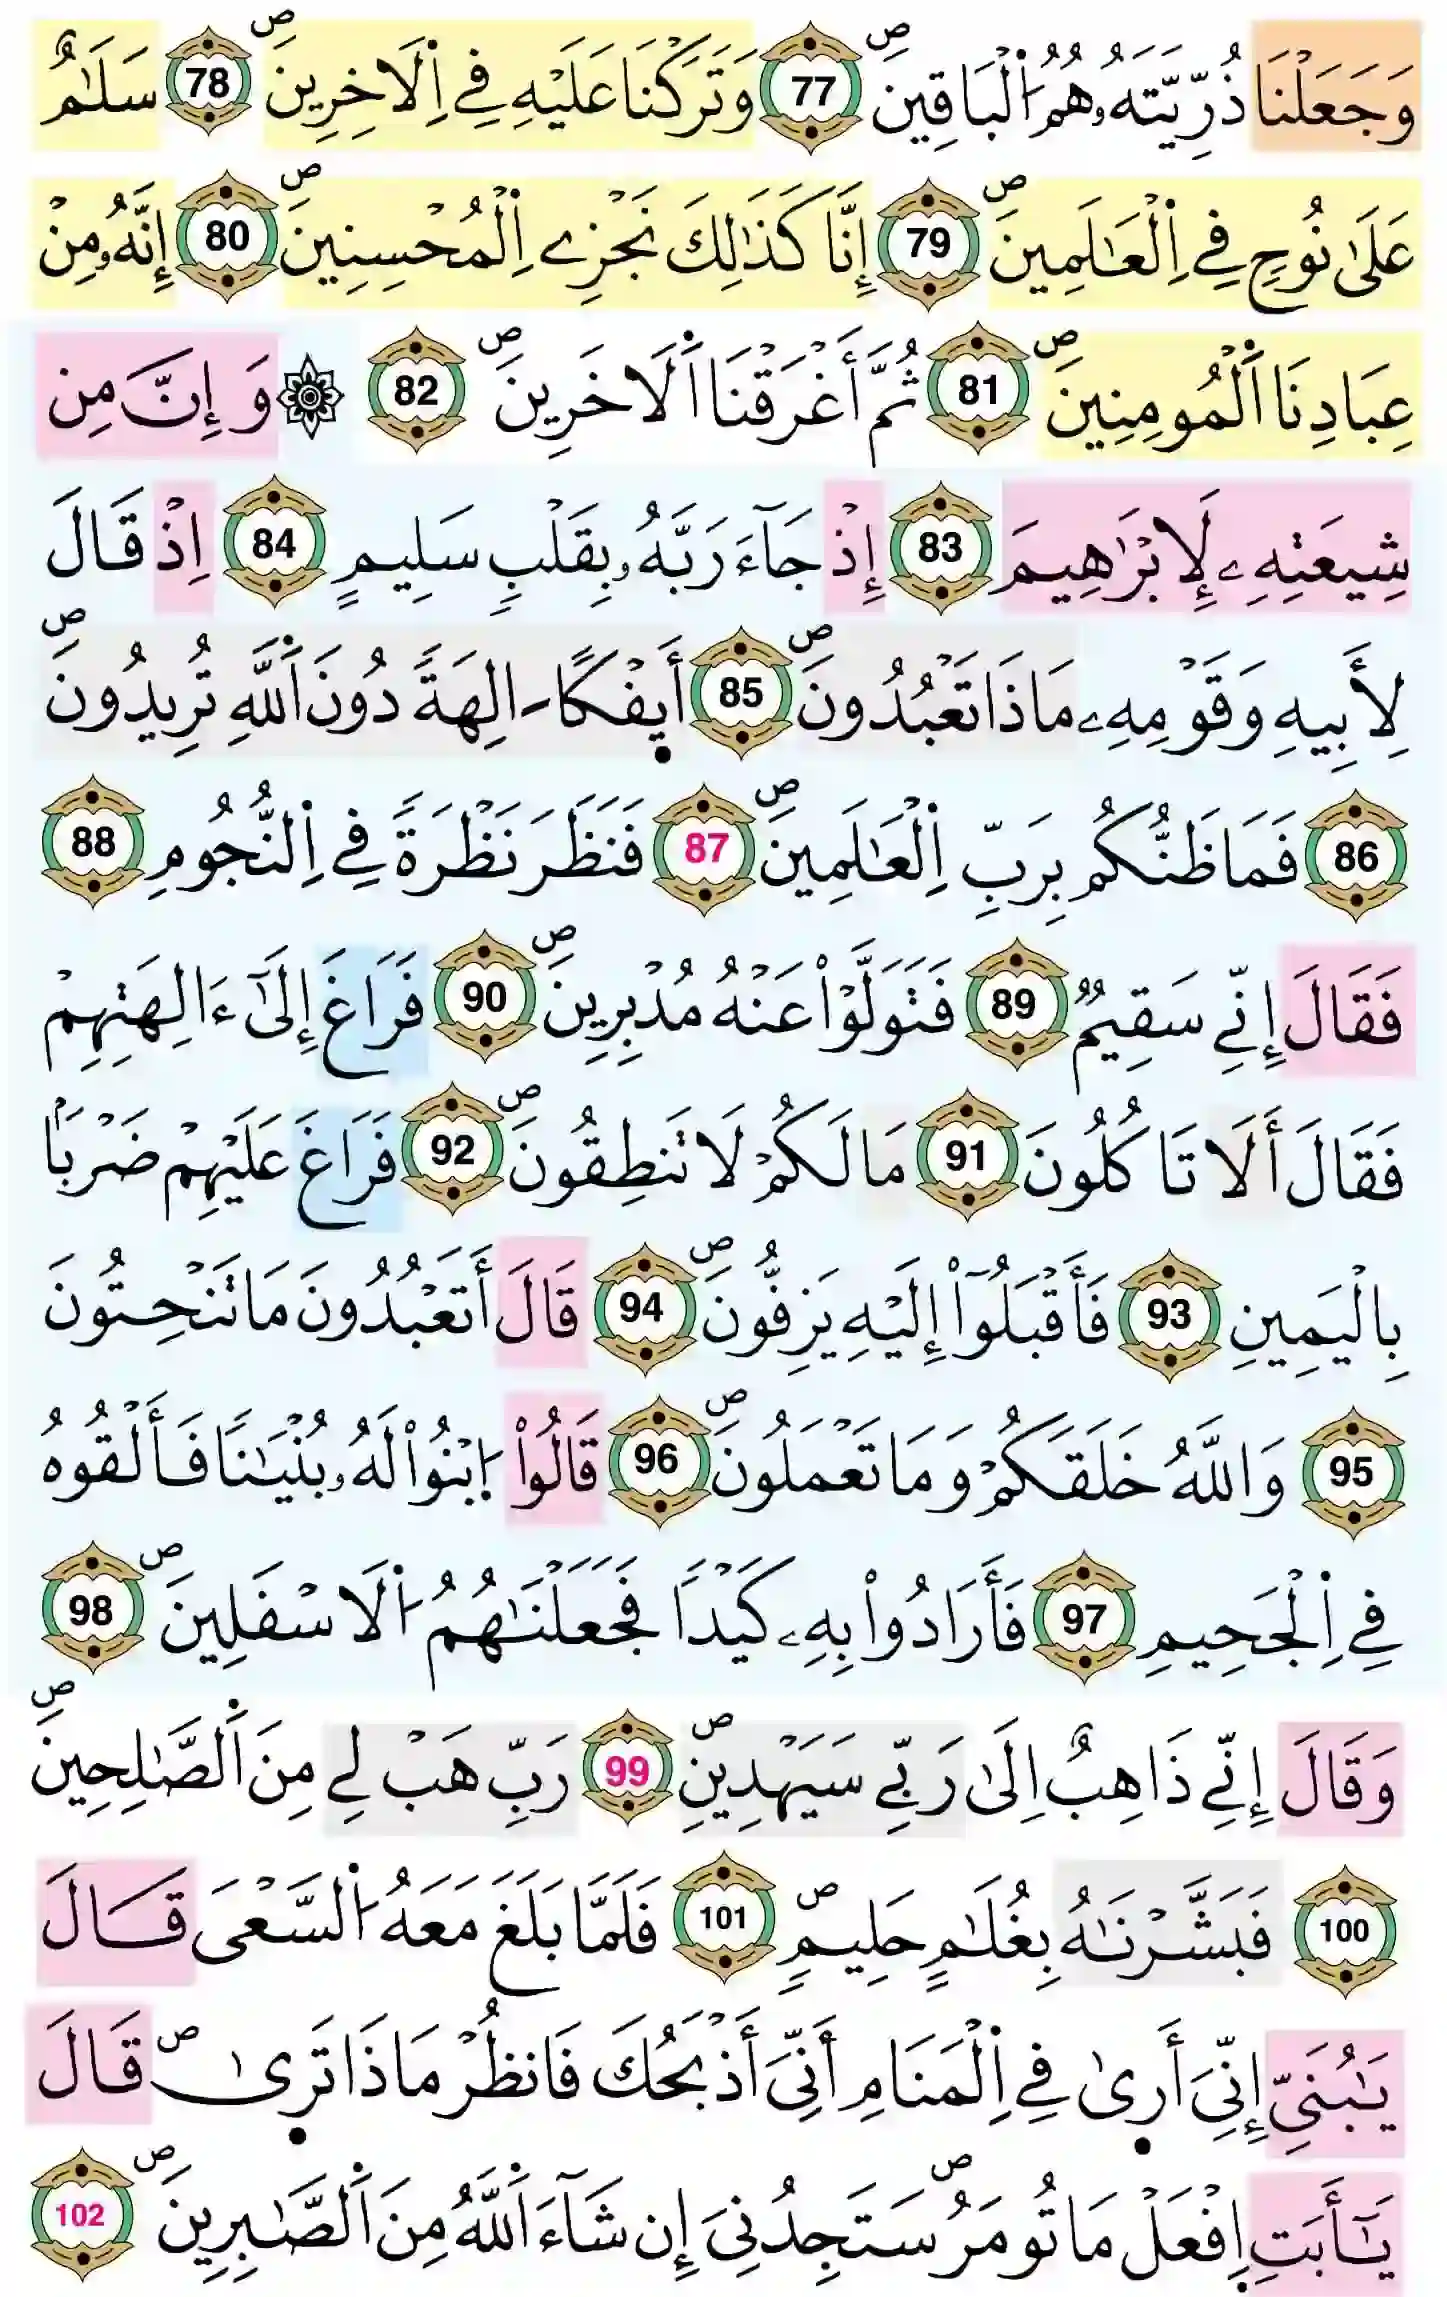 وَجَعَلْنَا ذُرِّيَّتَهُۥ هُمُ اُ۬لْبَاقِينَۖ 77 وَتَرَكْنَا عَلَيْهِ فِے اِ۬لَاخِرِينَۖ 78 سَلَٰمٌ
عَلَىٰ نُوحٖ فِے اِ۬لْعَٰلَمِينَۖ 79 إِنَّا كَذَٰلِكَ نَجْزِے اِ۬لْمُحْسِنِينَۖ 80 إِنَّهُۥ مِنْ
عِبَادِنَا اَ۬لْمُومِنِينَۖ 81 ثُمَّ أَغْرَقْنَا اَ۬لَاخَرِينَۖ 82 ۞ وَإِنَّ مِن
شِيعَتِهِۦ لَإِبْرَٰهِيمَ 83 إِذْ جَآءَ رَبَّهُۥ بِقَلْبٖ سَلِيمٍ 84 اِذْ قَالَ
لِأَبِيهِ وَقَوْمِهِۦ مَاذَا تَعْبُدُونَۖ 85 أَئِفْكاً اٰلِهَةٗ دُونَ اَ۬للَّهِ تُرِيدُونَۖ
86 فَمَا ظَنُّكُم بِرَبِّ اِ۬لْعَٰلَمِينَۖ 87 فَنَظَرَ نَظْرَةٗ فِے اِ۬لنُّجُومِ 88
فَقَالَ إِنِّے سَقِيمٞ 89 فَتَوَلَّوْاْ عَنْهُ مُدْبِرِينَۖ 90 فَرَاغَ إِلَىٰٓ ءَالِهَتِهِمْ
فَقَالَ أَلَا تَاكُلُونَ 91 مَا لَكُمْ لَا تَنطِقُونَۖ 92 فَرَاغَ عَلَيْهِمْ ضَرْبَاۢ
بِالْيَمِينِ 93 فَأَقْبَلُوٓاْ إِلَيْهِ يَزِفُّونَۖ 94 قَالَ أَتَعْبُدُونَ مَا تَنْحِتُونَ
95 وَاللَّهُ خَلَقَكُمْ وَمَا تَعْمَلُونَۖ 96 قَالُواْ اُ۪بْنُواْ لَهُۥ بُنْيَٰنٗا فَأَلْقُوهُ
فِے اِ۬لْجَحِيمِ 97 فَأَرَادُواْ بِهِۦ كَيْدٗا فَجَعَلْنَٰهُمُ اُ۬لَاسْفَلِينَۖ 98
وَقَالَ إِنِّے ذَاهِبٌ اِلَىٰ رَبِّے سَيَهْدِينِۖ 99 رَبِّ هَبْ لِے مِنَ اَ۬لصَّٰلِحِينَۖ
100 فَبَشَّرْنَٰهُ بِغُلَٰمٍ حَلِيمٖۖ 101 فَلَمَّا بَلَغَ مَعَهُ اُ۬لسَّعْىَ قَالَ
يَٰبُنَيِّ إِنِّيَ أَر۪ىٰ فِے اِ۬لْمَنَامِ أَنِّيَ أَذْبَحُكَ فَانظُرْ مَاذَا تَر۪ىٰۖ قَالَ
يَٰٓأَبَتِ اِ۪فْعَلْ مَا تُومَرُۖ سَتَجِدُنِيَ إِن شَآءَ اَ۬للَّهُ مِنَ اَ۬لصَّٰبِرِينَۖ 102